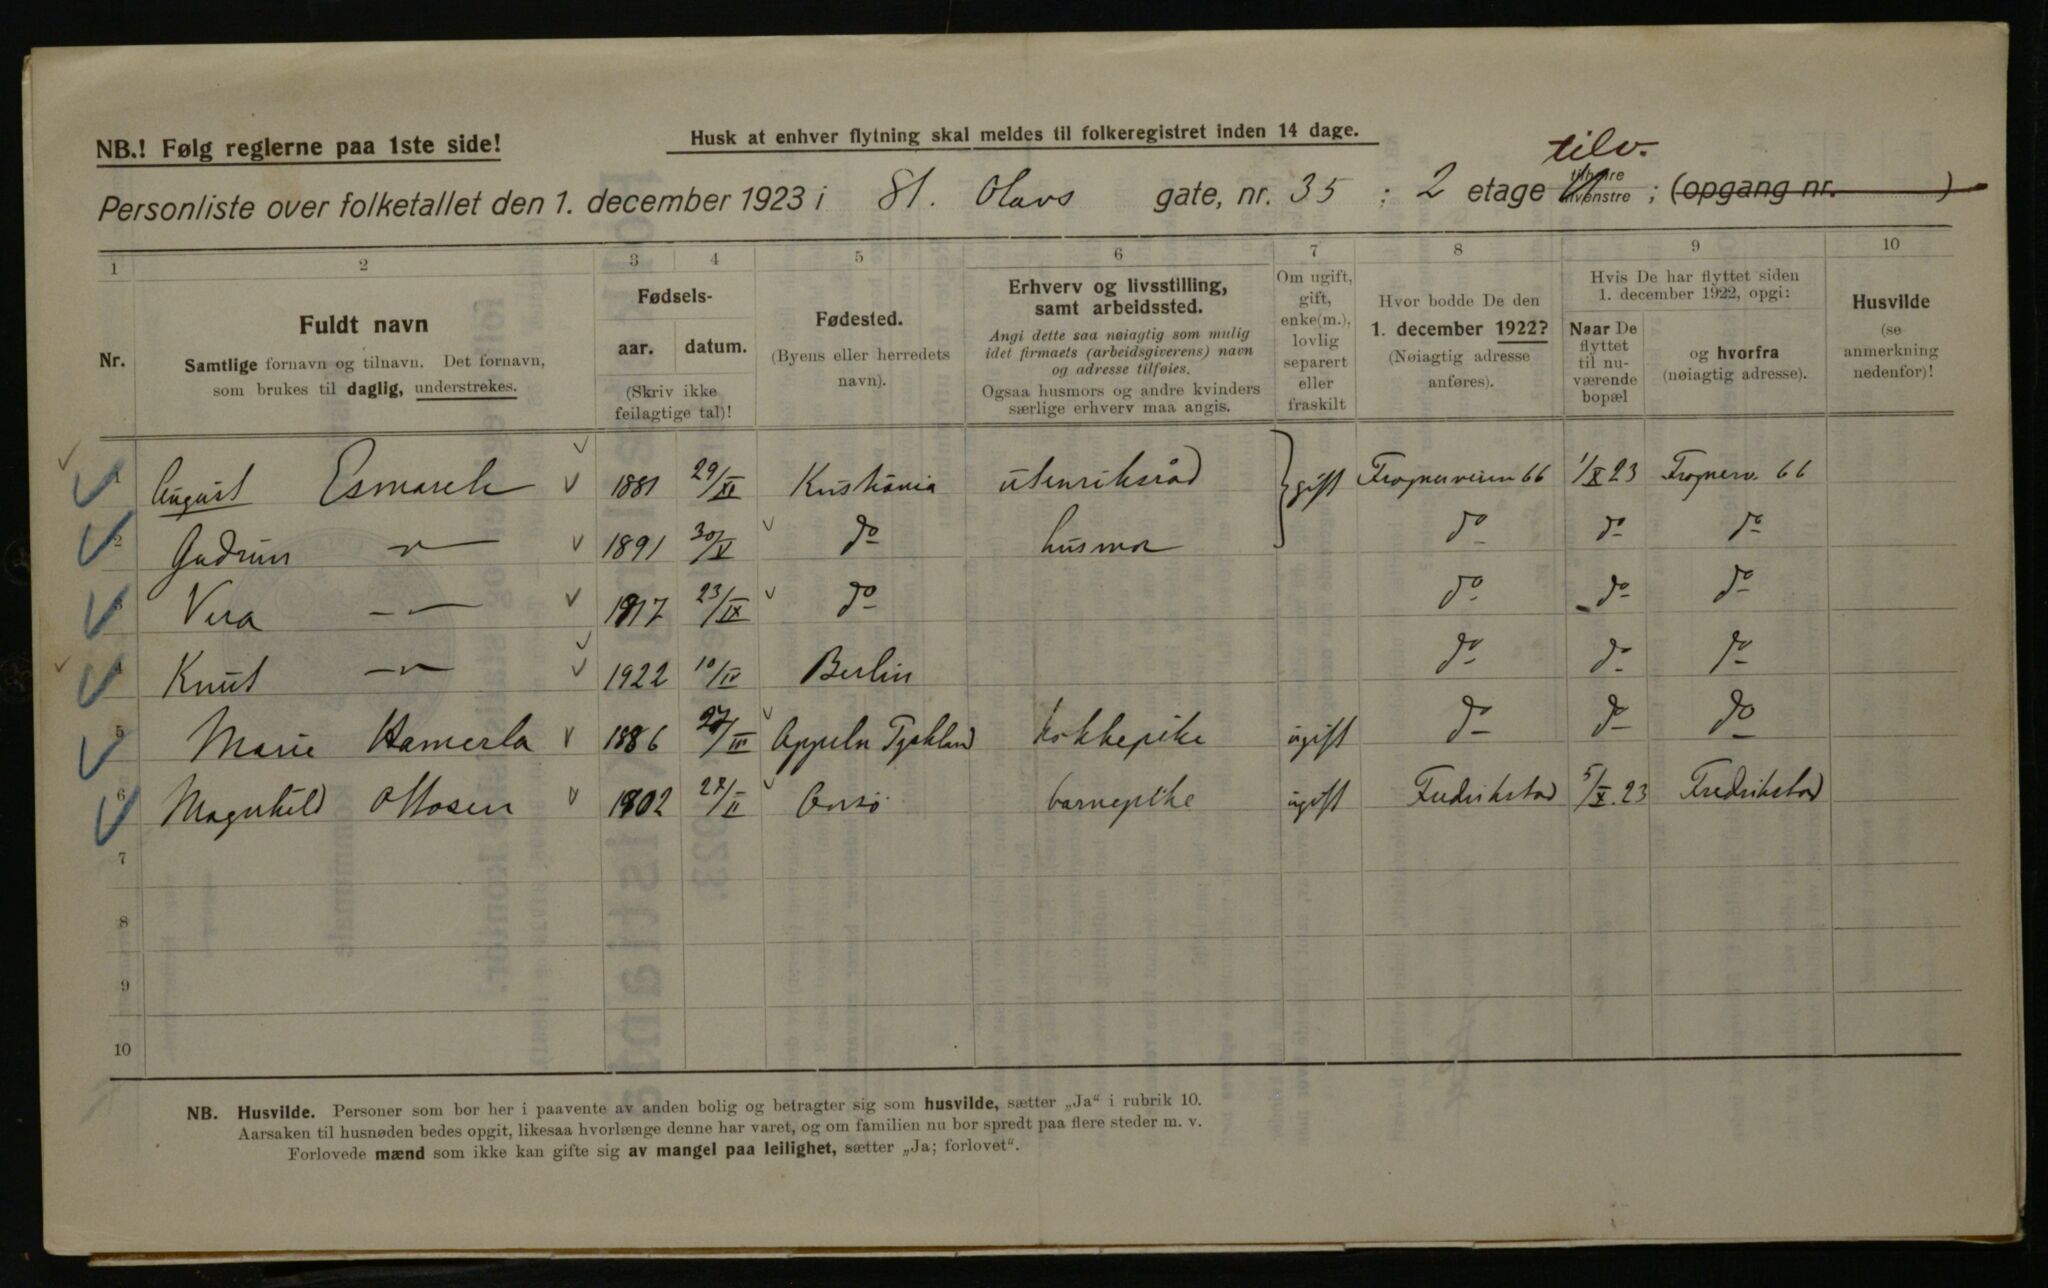 NB.! Følg reglerne paa 1ste side!
Husk at enhver flytning skal meldes til folkeregistret inden 14 dage.
tilv.
Personliste over folketallet den 1. december 1923 i St. Olavs gate, nr. 35 ; 2 etage tilhøire tilvenstre ; (opgang nr. )
1 2 3 4 5 6 7 8 9 10
Nr.
Fuldt navn
Samtlige fornavn og tilnavn. Det fornavn,
som brukes til daglig, understrekes.
Fødsels-
aar. datum.
(Skriv ikke
feilagtige tal)!
Fødested.
(Byens eller herredets
navn).
Erhverv og livsstilling,
samt arbeidssted.
Angi dette saa nøiagtig som mulig
idet firmaets (arbeidsgiverens) navn
og adresse tilføies.
Ogsaa husmors og andre kvinders
særlige erhverv maa angis.
Om ugift,
gift,
enke(m.),
lovlig
separert
eller
fraskilt
Hvor bodde De den
1. december 1922?
(Nøiagtig adresse
anføres).
Hvis De har flyttet siden
1. december 1922, opgi:
Naar De
flyttet
til nu-
værende
bopæl
og hvorfra
(nøiagtig adresse).
Husvilde
(se
anmerkning
nedenfor)!
1 August Esmarch 1881 29/XI Kristiania utenriksråd gift Frognerveien 66 1/X 23 Frognerv. 66
2 Gudrun — 1891 30/V do husmor do do do
3 Vera — 1917 23/IX do do do do
4 Knut — 1922 10/IV Berlin do do do
5 Marie Hamerla 1886 27/III Oppeln Tyskland kokkepike ugift do do do
6 Magnhild Ottosen 1902 27/II Onsø barnepike ugift Fredrikstad 5/X. 23 Fredrikstad
7
8
9
10
NB. Husvilde. Personer som bor her i paavente av anden bolig og betragter sig som husvilde, sætter „Ja“ i rubrik 10.
Aarsaken til husnøden bedes opgit, likesaa hvorlænge denne har varet, og om familien nu bor spredt paa flere steder m. v.
Forlovede mænd som ikke kan gifte sig av mangel paa leilighet, sætter „Ja; forlovet“.